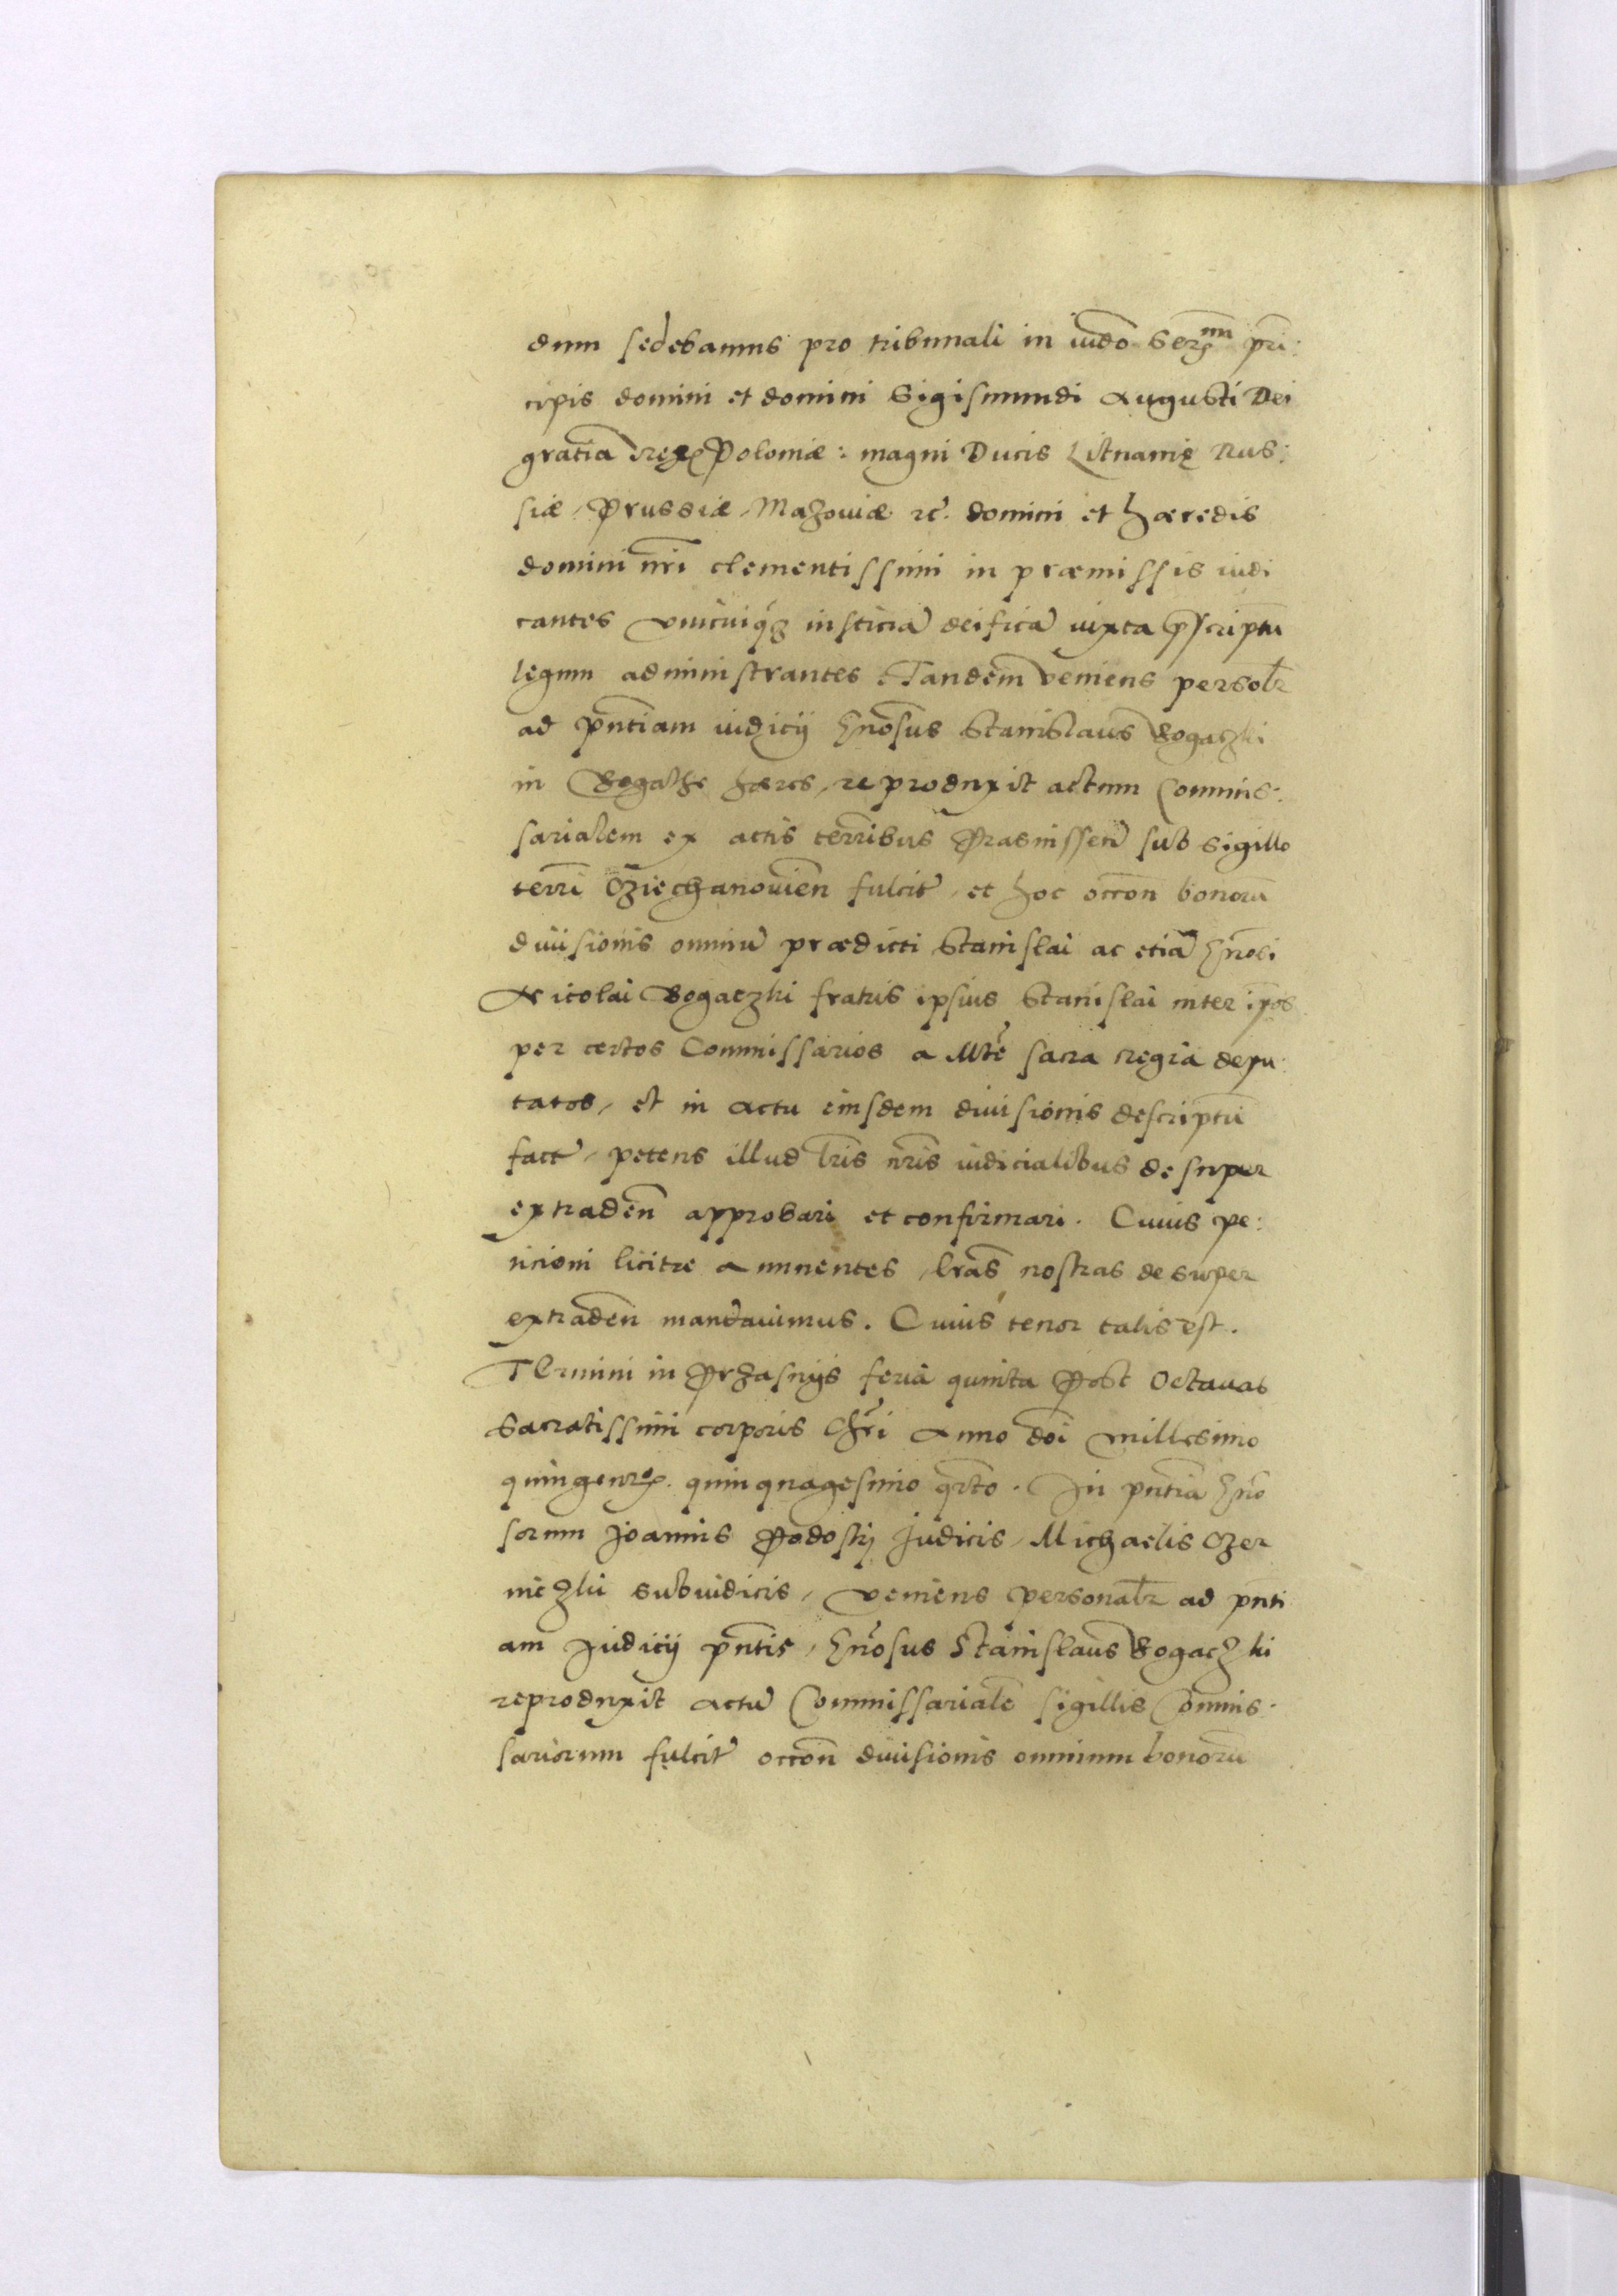 dum sedebamus pro tribunali in iudō Serᵐⁱ prī:
cipis domini et domini Sigismundi Augusti Dei
gratiā regꝭ Poloniæ: magni Ducis Litnanię Rus:
siæ, Prussiæ, Mazouiæ ꝛc̄. domini et hæredis
domini nr̄i clementissimi in præmissis iudi
cantes vnicuiqꝫ iusticiā deificā iuxta p̄scriptū
legum administrantes. Tandem veniens personalr̄
ad pn̄tiam iudicij Gn̄osus Stanislaus Bogaczki
in hæres, reproduxit actum Commis:
sarialem ex actis terribus Prasnisseñ sub sigillo
terrī Cziechanouien̄ fulcit̄, et hoc occōn bonorū
diuisionis omniū prædicti Stanislai ac etiā Gn̄osi
Nicolai Bogaczki fratris ipsius Stanislai inter ip̄os
per certos Commissarios a Mt̄e sacra regia depu:
tatos, et in actu eiusdem diuisionis descriptū
fact̄, petens illud lr̄is nr̄is iudicialibus desuper
extraden̄ approbari et confirmari. Cuius pe:
ticioni licitæ annuentes, lr̄as nostras desuper
extraden̄ mandauimus. Cuius tenor talis est.
Termini in Przasnijs feria quinta Post Octauas
Sacratissimi corporis Chr̄i Anno dōi millesimo
quingentꝭ. quinquagesimo qr̄to. In pn̄tia Gn̄o
sorum Joannis Podoskj Judicis, Michaelis Czer
niczki subiudicis, veniens personalr̄ ad pn̄ti
am Judicij pn̄tis, Gn̄osus Stanislaus Bogaczki
reproduxit actū Commissarialē sigillis Commis:
sariorum fulcit̄ occōn diuisionis omnium bonorū